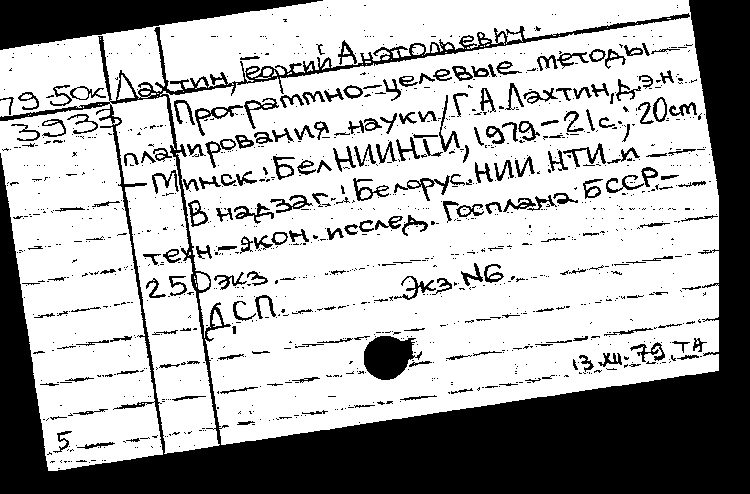 79-50к Лахтин, Георгий Анатольевич.
3933 Программно-целевые методы
планирования науки/Г.А.Лахтин, д.э.н.
— Минск: БелНИИНТИ, 1979.—21с.; 20cm.
В надзаг.: Белорус.НИИ НТИ и
техн.-экон. исслед. Госплана БССР.—
250экз.
ДСП. Экз. N6.
13.XII.79. ТА
5